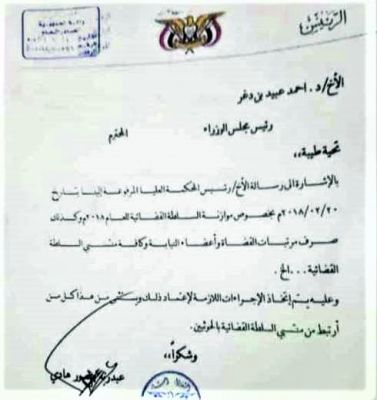 الرئيس
الأخ/د. احمد عبيد بن دغر
رئيس مجلس الوزراء المحترم
تحية طيبة،،
بالإشارة الى رسالة الأخ/رئيس المحكمة العليا المرفوعة إلينا بتاريخ
٢٠١٨/٠٢/٢٠م بخصوص موازنة السلطة القضائية للعام ٢٠١٨م وكذلك
صرف مرتبات القضاة وأعضاء النيابة وكافة منتسبي السلطة
القضائية...الخ.
وعليه يتم إتخاذ الإجراءات اللازمة لإعتماد ذلك ويستثنى من هذا كل من
أرتبط من منتسبي السلطة القضائية بالحوثيين.
وشكراً،،
عبدربه منصور هادي